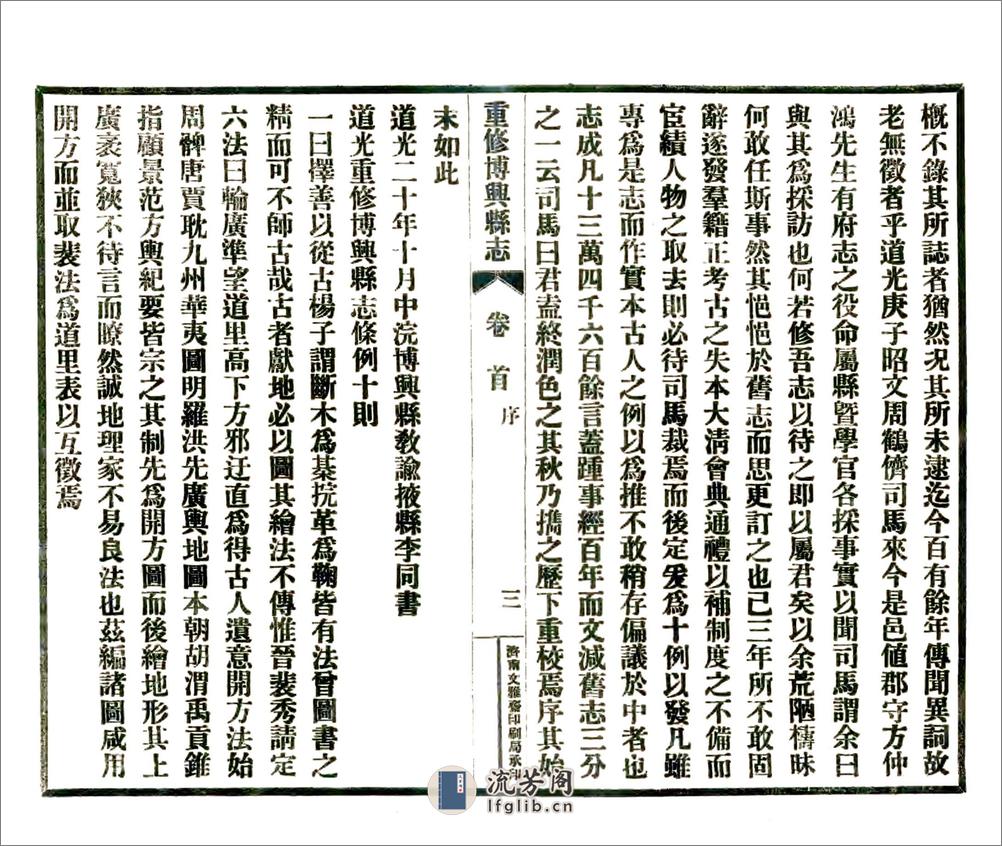 概不錄其所誌者猶然況其所未逮迄今百有餘年傳聞異詞故
老無徵者乎道光庚子昭文周鶴儕司馬來今是邑値郡守方仲
鴻先生有府志之役命屬縣曁學官各採事實以聞司馬謂余曰
與其爲採訪也何若修吾志以待之即以屬君矣以余荒陋檮昧
何敢任斯事然其悒悒於舊志而思更訂之也己三年所不敢固
辭遂發羣籍正考古之失本大淸會典通禮以補制度之不備而
宦績人物之取去則必待司馬裁焉而後定爰爲十例以發凡雖
專爲是志而作實本古人之例以爲推不敢稍存偏議於中者也
志成凡十三萬四千六百餘言蓋踵事經百年而文減舊志三分
之一云司馬曰君盍終潤色之其秋乃攜之歷下重校焉序其始
重修博興縣志
卷首
序
三
濟南文雅齋印刷局承印
末如此
道光二十年十月中浣博興縣敎諭掖縣李同書
道光重修博興縣志條例十則
一曰擇善以從古楊子謂斷木爲棊捖革爲鞠皆有法曾圖書之
精而可不師古哉古者獻地必以圖其繪法不傳惟晉裴秀請定
六法曰輪廣準望道里高下方邪迂直爲得古人遺意開方法始
周髀唐賈耽九州華夷圖明羅洪先廣輿地圖本朝胡渭禹貢錐
指顧景范方輿紀要皆宗之其制先爲開方圖而後繪地形其上
廣袤寬狹不待言而瞭然誠地理家不易良法也茲編諸圖咸用
開方而並取裴法爲道里表以互徵焉
流芳阁
lfglib.cn